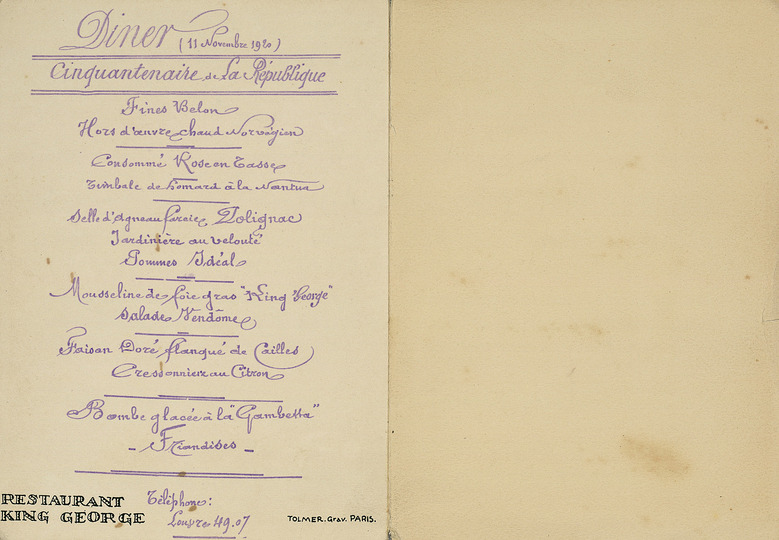 Diner (11 Novembre 1920)
Cinquantenaire de La République
Fines Belon
Hors d'œuvre chaud Norvégien
Consommé Rose en Tasse
Timbale de homard à la Nantua
Selle d'Agneau farcie Polignac
Jardinière au velouté
Pommes Idéal
Mousseline de foie gras "King George"
Salade Vendôme
Faisan Doré flanqué de Cailles
Cressonniere au Citron
Bombe glacée à la "Gambetta"
- Friandises -
RESTAURANT
KING GEORGE
Téléphone:
Louvre 49.07
TOLMER. Grav. PARIS.